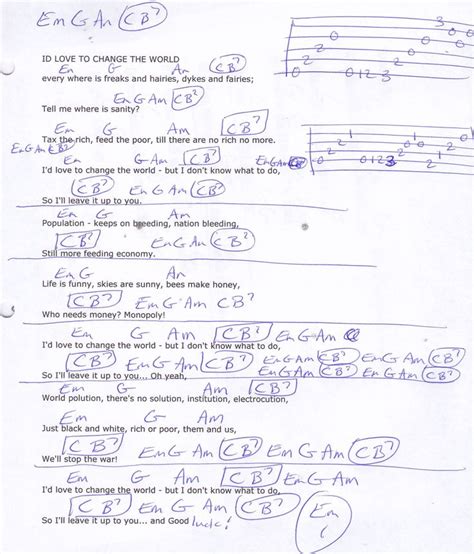 Em G Am CB7
3
0 0 0
0 2 0
2 2
2
0 0 1 2 3
ID LOVE TO CHANGE THE WORLD
Em G Am CB7
every where is freaks and hairies, dykes and fairies;
Em G Am CB7
Tell me where is sanity?
Em G Am CB7
Tax the rich, feed the poor, till there are no rich no more.
Em G Am CB7
Em G Am CB7 Em G Am CB7
I'd love to change the world - but I don't know what to do,
CB7 Em G Am CB7
So I'll leave it up to you.
Em G Am
Population - keeps on breeding, nation bleeding,
CB7 Em G Am CB7
Still more feeding economy.
Em G Am
Life is funny, skies are sunny, bees make honey,
CB7 Em G Am CB7
Who needs money? Monopoly!
Em G Am CB7 Em G Am
I'd love to change the world - but I don't know what to do,
CB7 Em G Am CB7 Em G Am CB7 Em G Am CB7
So I'll leave it up to you... Oh yeah, Em G Am CB7 Em G Am CB7
Em G Am CB7
World polution, there's no solution, institution, electrocution,
Em G Am
Just black and white, rich or poor, them and us,
CB7 Em G Am CB7 Em G Am CB7
We'll stop the war!
Em G Am CB7 Em G Am
I'd love to change the world - but I don't know what to do,
CB7 Em G Am CB7 Em
So I'll leave it up to you... and Good luck!